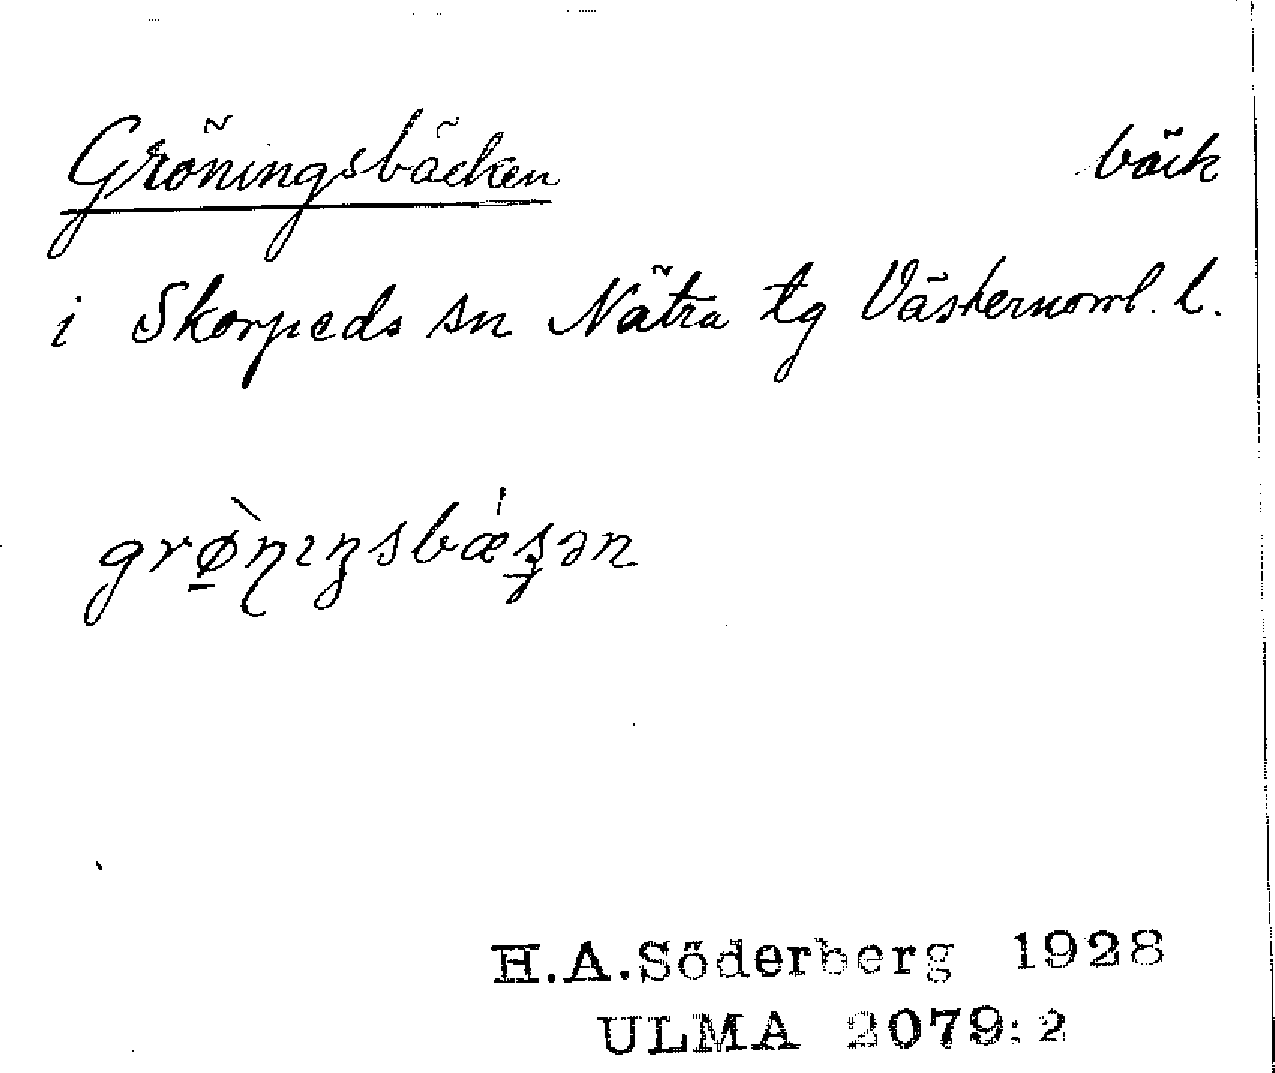 Gröningsbäcken bäck
i Skorpeds sn Nätra tg Västernorrl. l.
H.A.Söderberg 1928
ULMA 2079:2